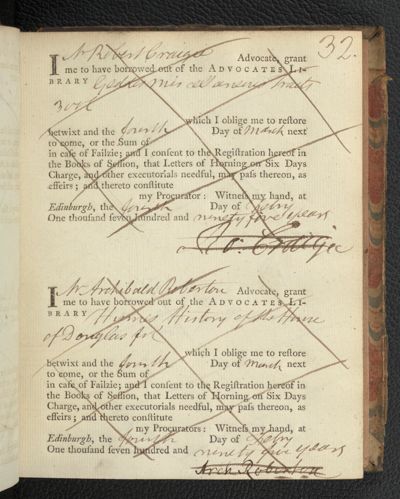 32.
I Mr Robert Craigie Advocate, grant
me to have borrowed out of the ADVOCATES LI-
BRARY miscellaneous tracts
3 vol
which I oblige me to reſtore
betwixt and the fourth Day of March next
to come, or the Sum of
in caſe of Failzie; and I conſent to the Regiſtration hereof in
the Books of Seſſion, that Letters of Horning on Six Days
Charge, and other executorials needful, may paſs thereon, as
effeirs; and thereto conſtitute
my Procurator: Witneſs my hand, at
Edinburgh, the fourth Day of
One thouſand ſeven hundred and ninety five years
Ro: Craigie
I Mr Archibald Roberton Advocate, grant
me to have borrowed out of the ADVOCATES LI-
BRARY Humes History of the House
of Douglas fol
which I oblige me to reſtore
betwixt and the fourth Day of March next
to come, or the Sum of
in caſe of Failzie; and I conſent to the Regiſtration hereof in
the Books of Seſſion, that Letters of Horning on Six Days
Charge, and other executorials needful, may paſs thereon, as
effeirs; and thereto conſtitute
my Procurators: Witneſs my hand, at
Edinburgh, the fourth Day of
One thouſand ſeven hundred and ninety five years
Arch: Roberton